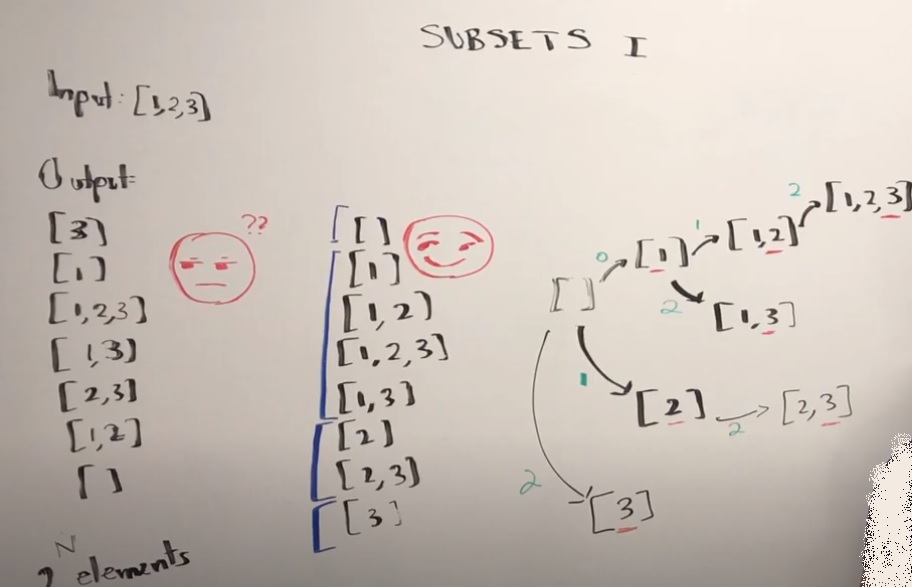 SUBSETS I
Input: [1,2,3]
Output:
[3]
[1]
[1,2,3]
[1,3]
[2,3]
[1,2]
[]
2^N elements
??
[]
[1]
[1,2]
[1,2,3]
[1,3]
[2]
[2,3]
[3]
[]
0
[1]
1
[1,2]
2
[1,2,3]
2
[1,3]
1
[2]
2
[2,3]
2
[3]